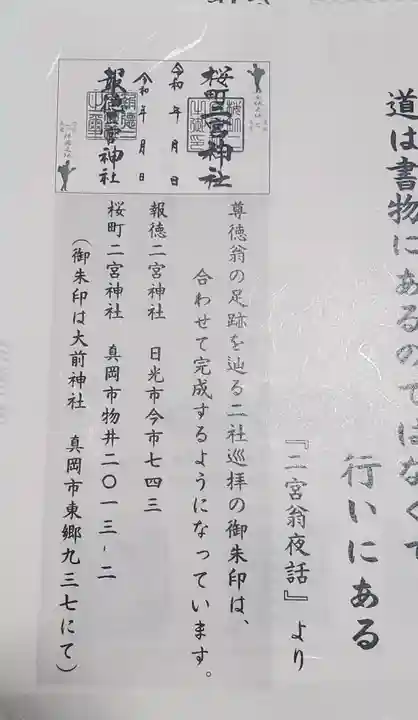 道は書物にあるのではなくて
行いにある
『二宮翁夜話』より
桜町二宮神社
令和　年　月　日
報徳二宮神社
令和　年　月　日
尊徳翁の足跡を辿る二社巡拝の御朱印は、
合わせて完成するようになっています。
報徳二宮神社　日光市今市七四三
桜町二宮神社　真岡市物井二〇一三-二
（御朱印は大前神社　真岡市東郷九三七にて）